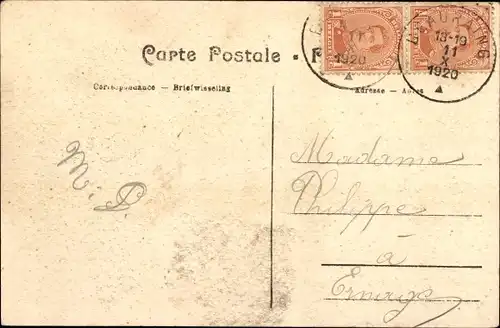 Carte Postale
Correspondance — Briefwisseling
M. P.
BEAURAING
18-19
11
X
1920
1920
Adresse — Adres
Madame
Philippe
à
Ernage